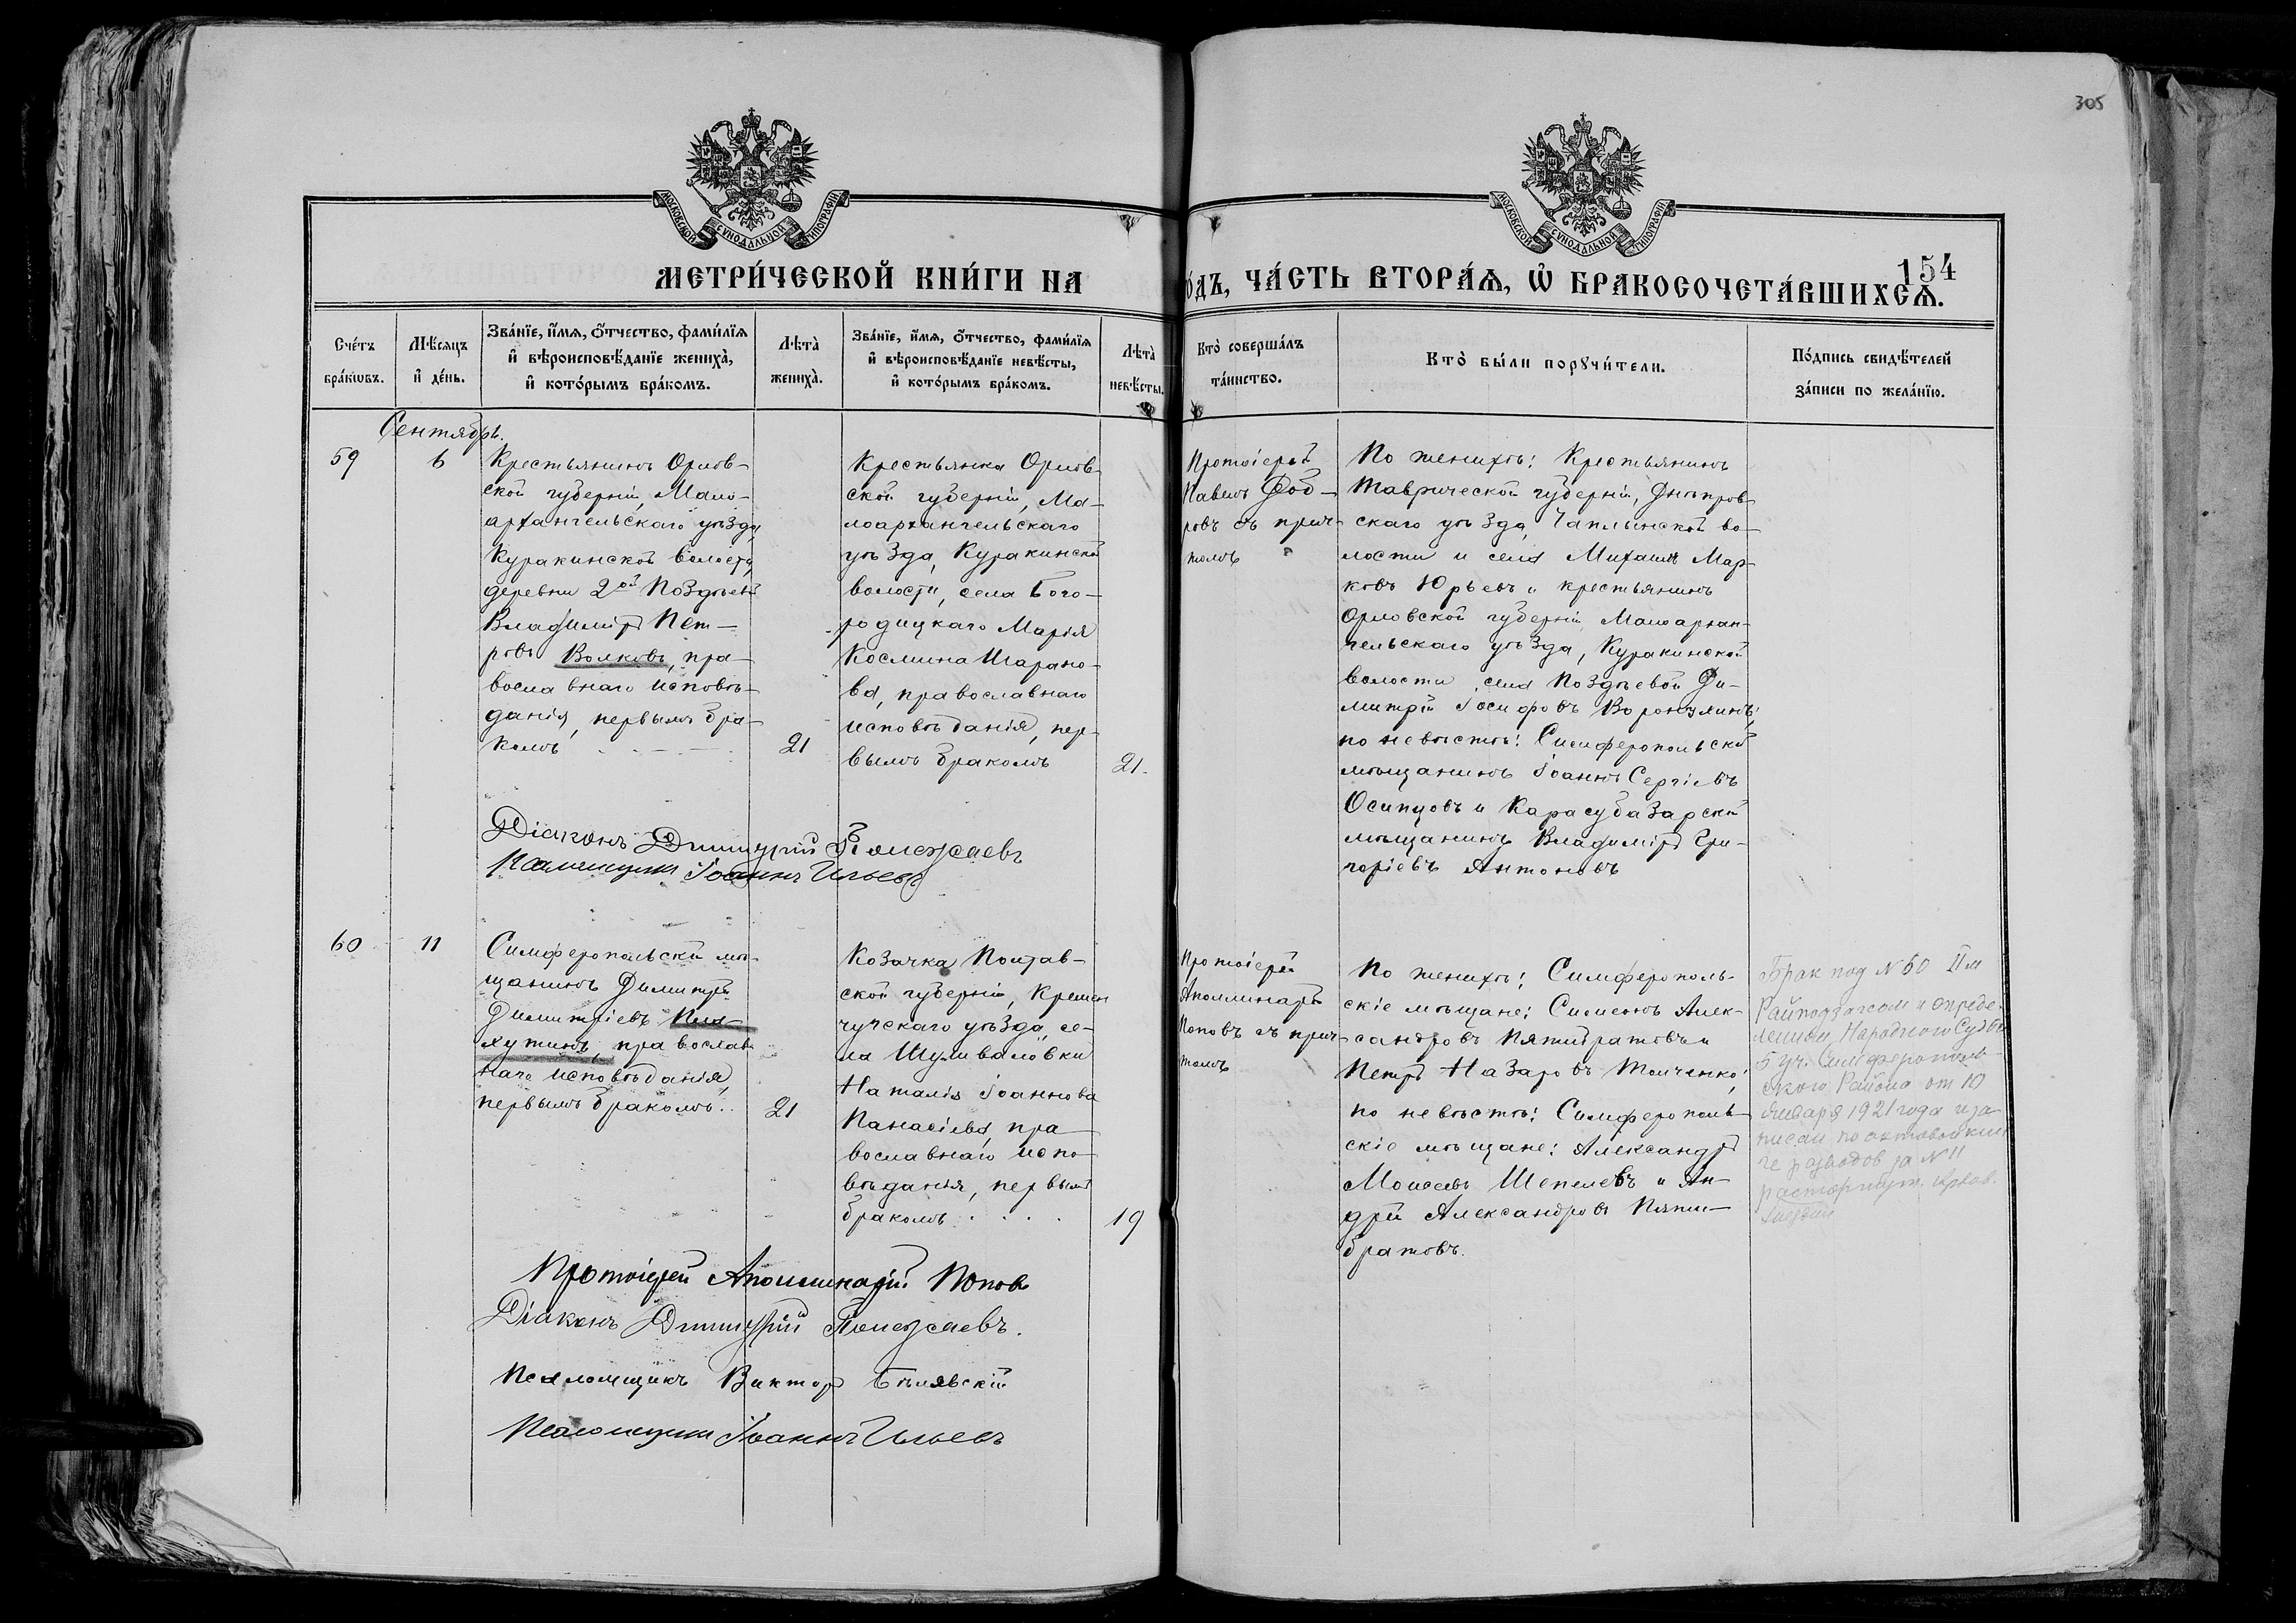 305
МОСКОВСКОЙ СѴНОДАЛЬНОЙ ТИПОГРАФІИ
МОСКОВСКОЙ СѴНОДАЛЬНОЙ ТИПОГРАФІИ
154
МЕТРИ́ЧЕСКОЙ КНИ́ГИ НА
О́ДЪ, ЧА́СТЬ ВТОРА́Ѧ, Ѡ҆ БРАКОСОЧЕТА́ВШИХСѦ.
Сче́тъ
бра́кѡвъ.
Мѣ́сяцъ
и҆ де́нь.
Зва́нїе, и҆́мѧ, ѻ҆́тчество, фами́лїѧ
и҆ вѣроисповѣ́данїе жениха̀,
и҆ кото́рымъ бра́комъ.
Лѣта̀
жениха̀.
Зва́нїе, и҆́мѧ, ѻ҆́тчество, фами́лїѧ
и҆ вѣроисповѣ́данїе невѣ́сты,
и҆ кото́рымъ бра́комъ.
Лѣта̀
невѣ́сты.
Кто̀ соверша́лъ
та́инство.
Кто̀ бы́ли порꙋчи́тели.
По́дпись свидѣ́телей
за́писи по жела́нїю.
Сентябрь.
59
6
Крестьянинъ Орлов-
ской губерніи, Мало-
архангельскаго уѣзда,
Куракинской волости,
деревни 2ой Поздѣевой
Владиміръ Пет-
ровъ Волковъ, пра-
вославнаго исповѣ-
данія, первымъ бра-
комъ
21
Крестьянка Орлов-
ской губерніи, Ма-
лоархангельскаго
уѣзда, Куракинской
волости, села Бого-
родицкаго Марія
Космина Шарано-
ва, православнаго
исповѣданія, пер-
вымъ бракомъ
21.
Протоіерей
Павелъ
ровъ съ прич-
томъ
По женихѣ: Крестьянинъ
Таврической губерніи, Днѣпров-
скаго уѣзда, Чаплинской во-
лости и села Михаилъ Мар-
ковъ Юрьевъ и крестьянинъ
Орловской губерніи, Малоархан-
гельскаго уѣзда, Куракинской
волости, села Поздѣевой Ди-
митрій Іосифовъ
по невѣстѣ: Симферопольскій
мѣщанинъ Іоаннъ Сергіевъ
Осипцовъ и Карасубазарскій
мѣщанинъ Владиміръ Гри-
горіевъ Антоновъ
Діаконъ Димитрій Полежаевъ
Псаломщикъ Іоаннъ Ильевъ
60
11
Симферопольскій мѣ-
щанинъ Димитрій
Димитріевъ
православ-
наго исповѣданія,
первымъ бракомъ..
21
Козачка Полтав-
ской губерніи, Кремен-
чугскаго уѣзда, се-
ла Шушваловки
Наталія Іоаннова
Панасіева, пра-
вославнаго испо-
вѣданія, первымъ
бракомъ . . . .
19
Протоіерей
Аполлинарій
Поповъ съ прич-
томъ
По женихѣ: Симферополь-
скіе мѣщане: Симеонъ Алек-
сандровъ Пятибратовъ и
Петръ Назаровъ Толченко;
по невѣстѣ: Симферополь-
скіе мѣщане: Александръ
Моисеевъ Шепелевъ и Ан-
дрей Александровъ Пяти-
братовъ.
Брак под N 60
Райподзагсом и опреде-
лением Народного Суда
5 уч. Симферополь-
ского Района от 10
января 1921 года и за-
писан по актовой кни-
ге разводов за N 11
расторгнут.
Протоіерей Аполлинарій Поповъ
Діаконъ Димитрій Полежаевъ.
Псаломщикъ Викторъ Бѣлявскій
Псаломщикъ Іоаннъ Ильевъ